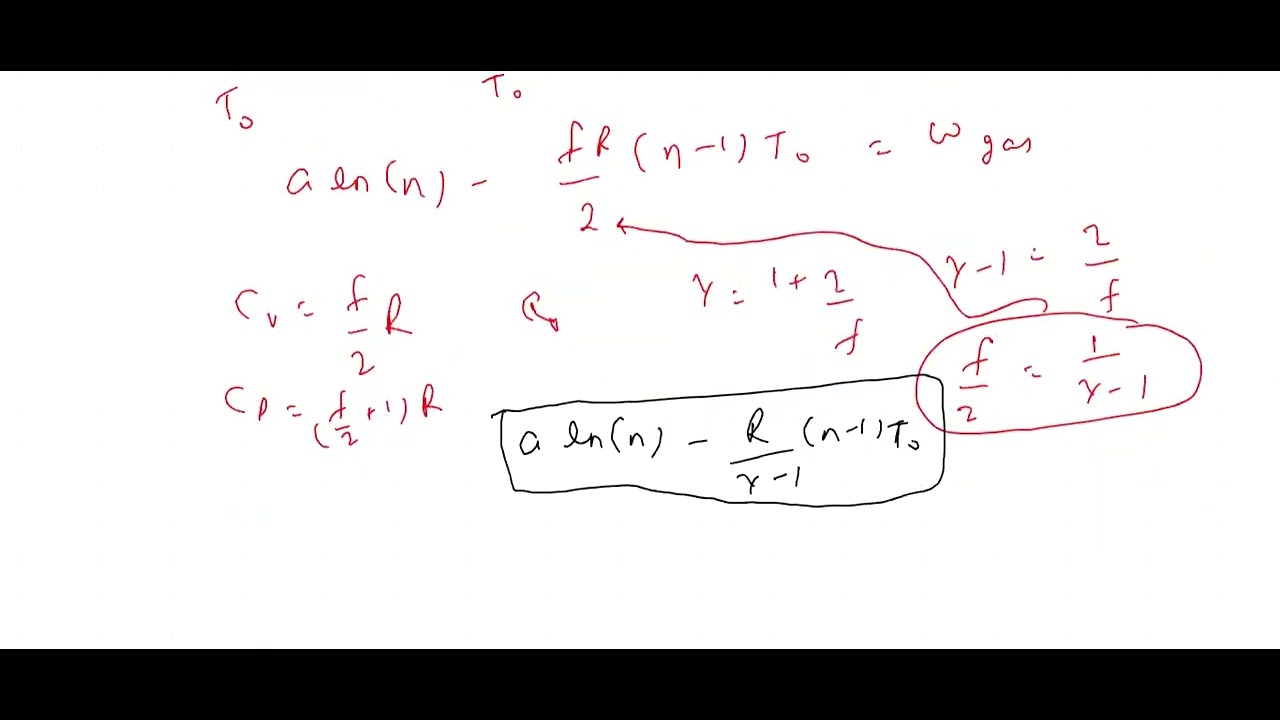 T₀ T₀
a ln(n) - fR/2 (n-1) T₀ = w gas
γ = 1 + 2/f
γ-1 = 2/f
Cᵥ = f/2 R
f/2 = 1/γ-1
Cₚ = (f/2 + 1) R
a ln(n) - R/γ-1 (n-1) T₀